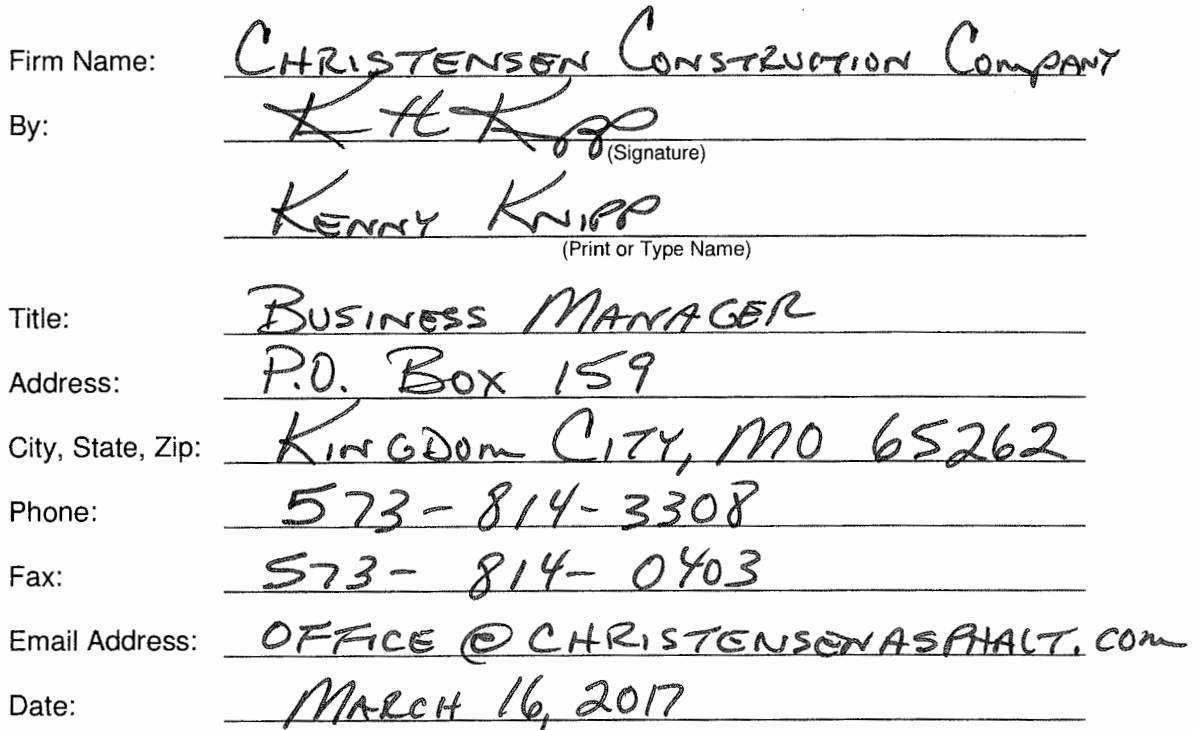 Firm Name: CHRISTENSEN CONSTRUCTION COMPANY
By: K H K
(Signature)
KENNY KNIPP
(Print or Type Name)
Title: BUSINESS MANAGER
Address: P.O. BOX 159
City, State, Zip: KINGDOM CITY, MO 65262
Phone: 573-814-3308
Fax: 573-814-0403
Email Address: OFFICE@CHRISTENSENASPHALT.COM
Date: MARCH 16, 2017